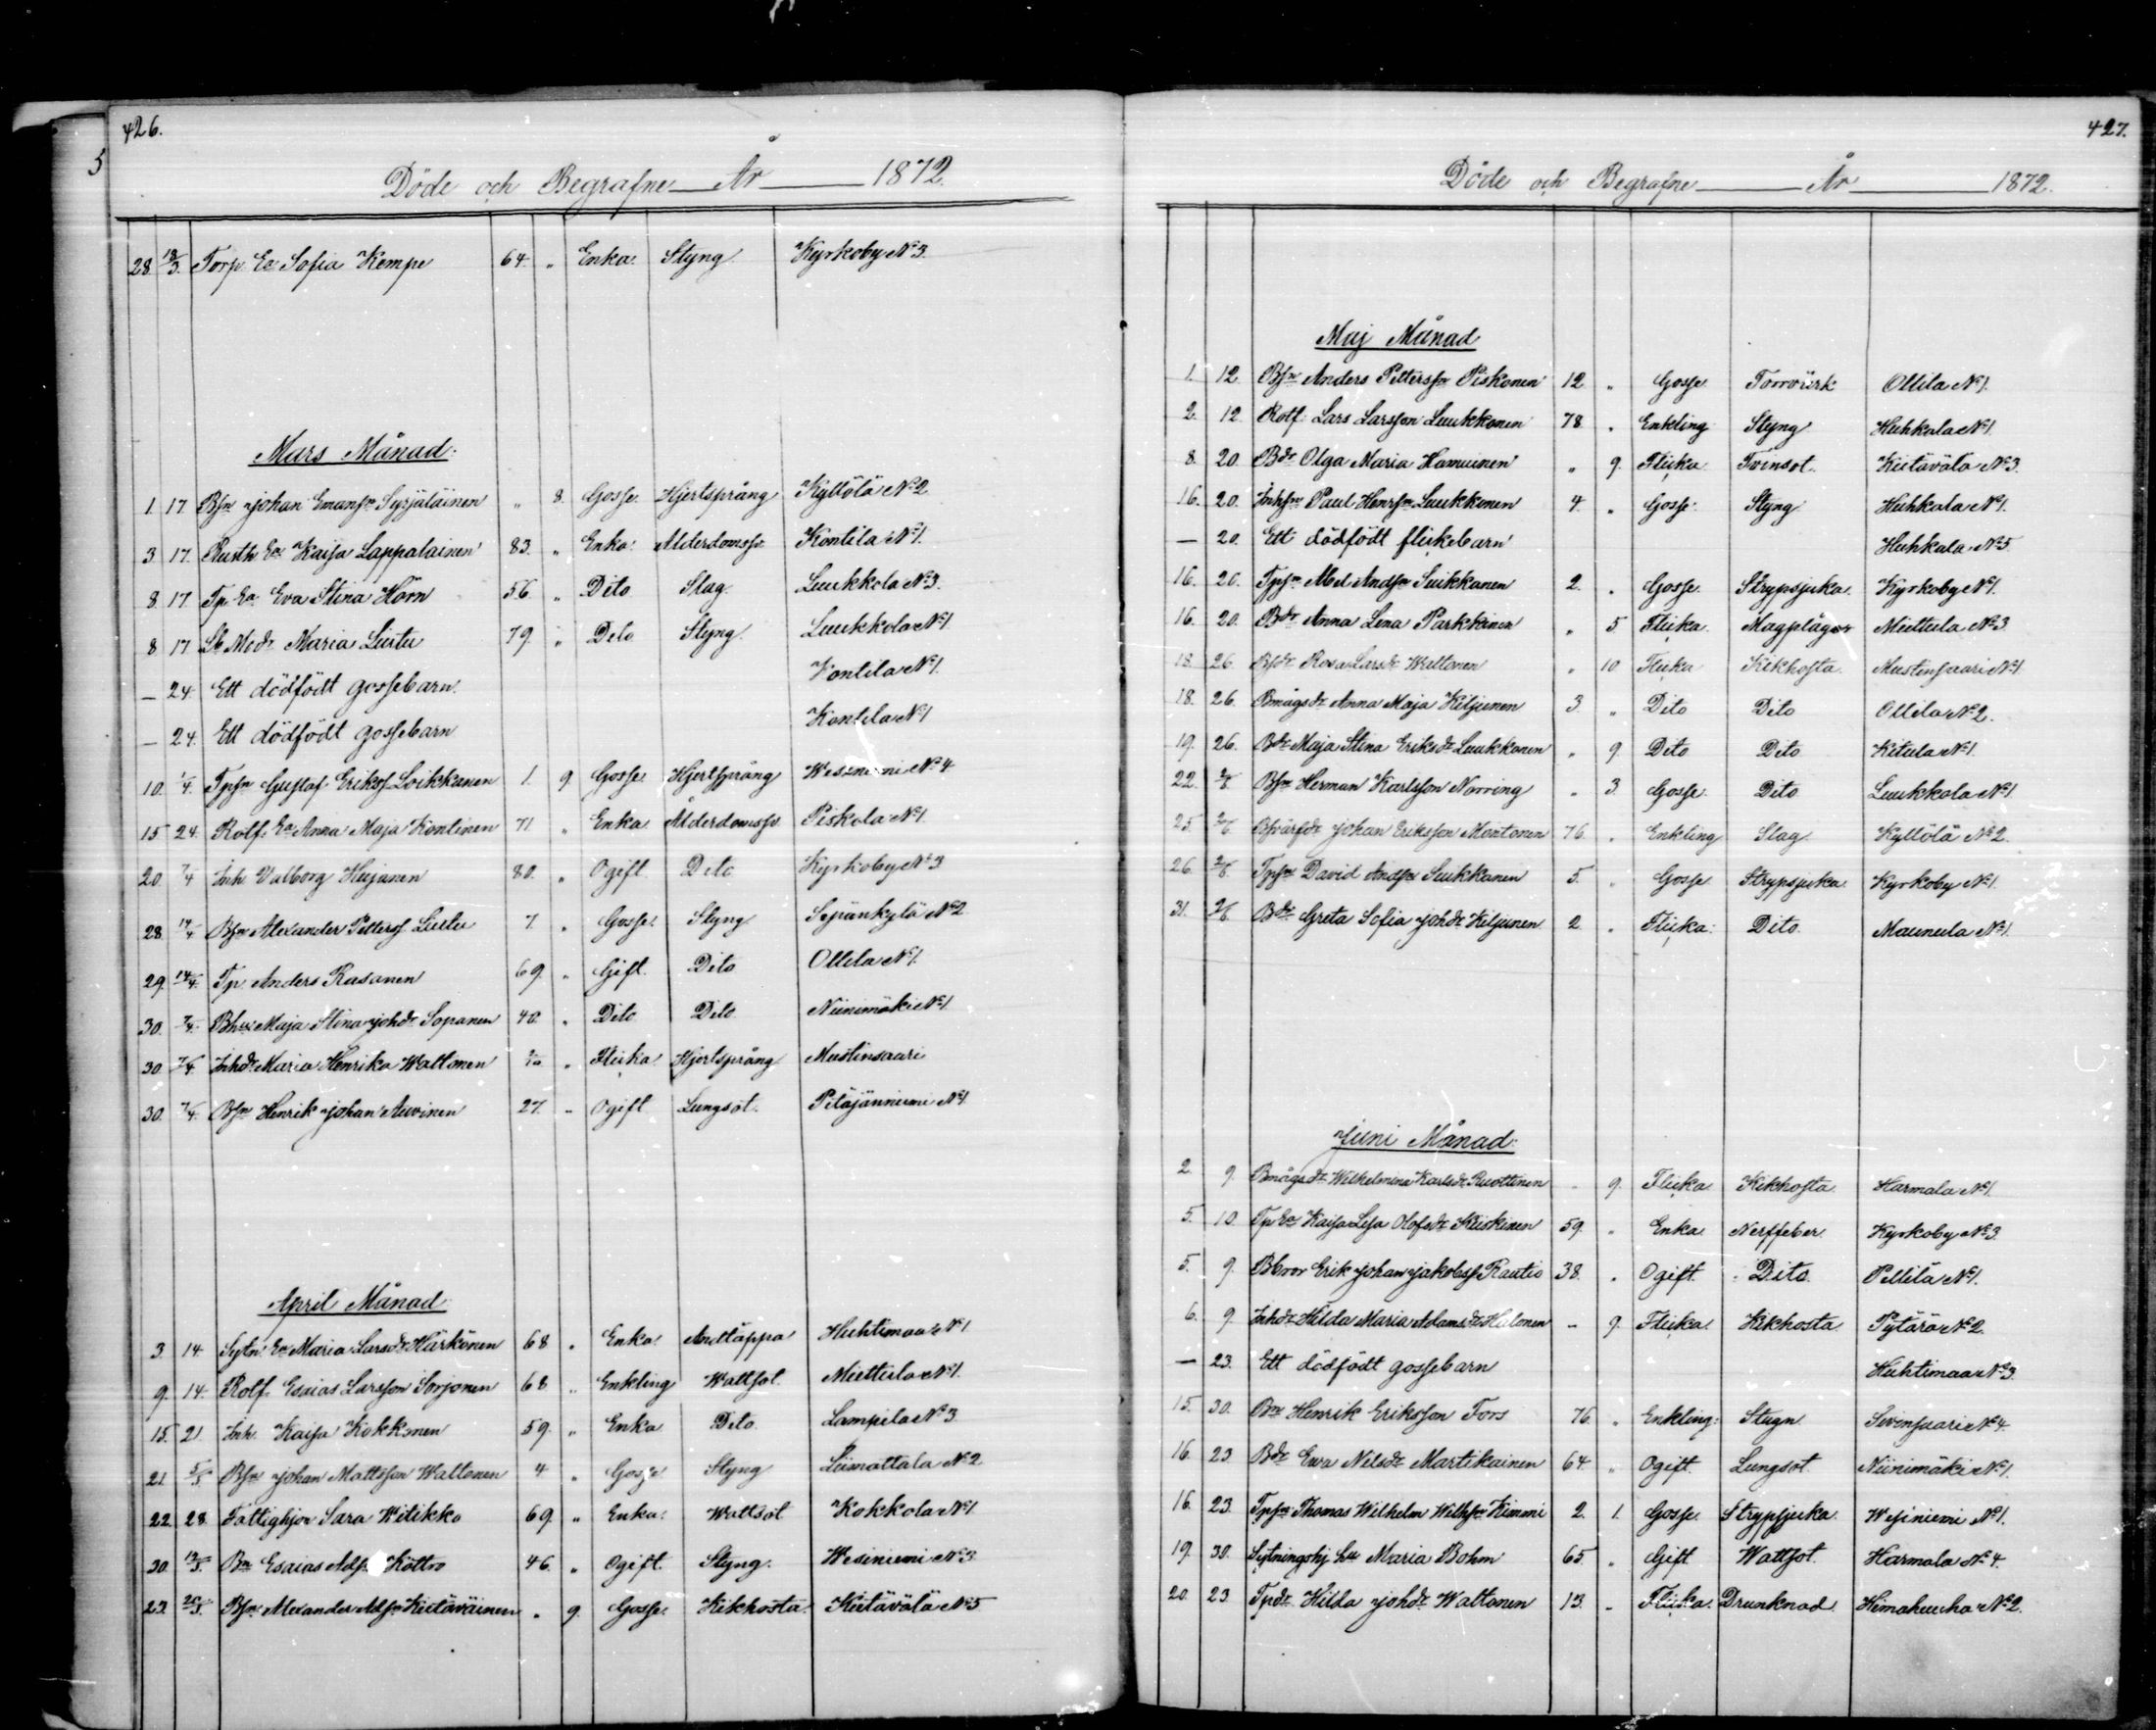 426.
5
Döde och Begrafne År 1872.
28. 18/3. Torp. Ea Sofia Kempe 64. " Enka. Styng. Kyrkoby No 3.
Mars Månad.
1. 17. Bsn Johan Emansn Syrjäläinen " 8. Gosse. Hjertsprång Kyllölä No 2
3. 17. Rusth. Ea Kaisa Lappalainen 83. " Enka. Ålderdomssv. Kontila No 1.
8. 17. Tp. Ea Eva Stina Hörn 56. " Dito Slag. Luukkola No 3.
8. 17. Maria Lustu 79. " Dito Styng. Luukkola No 1
— 24. Ett dödfödt gossebarn. Kontila No 1.
— 24. Ett dödfödt gossebarn Kontila No 1
10. 1/4. Tpsn Gustaf Erikss. Loikkanen 1. 9. Gosse Hjertsprång Wesiniemi No 4.
15. 24. Rotf. Ea Anna Maja Kontinen 71 " Enka Ålderdomssv. Piskola No 1.
20. 7/4 Inh. Valborg Hujanen 80. " Ogift Dito Kyrkoby No 3
28. 14/4 Bsn Alexander Petterss. Lustu 7. " Gosse. Styng Sepänkylä No 2
29. 14/4. Tp. Anders Rasanen 69. " Gift. Dito Ollila No 1.
30. 7/4. Maja Stina Johdr Sopanen 40. " Dito Dito Niinimäki No 1
30. 7/4. Inhdr Maria Henrika Waltonen " Flicka Hjertsprång Mustinsaari
30. 7/4. Bsn Henrik Johan Auvinen 27. " Ogift Lungsot. Pitäjänniemi No 1.
April Månad.
3. 14. Sytn. Ea Maria Larsdr Härkönen 68 " Enka. Andtäppa Huhtimaa No 1
9. 14. Rotf. Esaias Larsson Sorjonen 68 " Enkling Wattsot. Miettula No 1.
15. 21. Inh. Kaisa Kokkonen 59. " Enka Dito. Lampila No 3.
21. 5/5. Bsn Johan Mattsson Waltonen 4 " Gosse Styng Liimattala No 2
22. 28. Fattighjon Sara Witikka 69. " Enka. Wattsot Kokkola No 1
30. 12/5. Bn Esaias Köttro 46. " Ogift. Styng. Wesiniemi No 3.
23. 20/5. Bsn Alexander Adsn Kietäväinen " 9. Gosse. Kikhosta. Kietävälä No 5
427.
Döde och Begrafne År 1872.
Maj Månad
1. 12. Bsn Anders Pettersson Piskonen 12. " Gosse Torrvärk Ollila No 1.
2. 12. Rotf. Lars Larsson Luukkonen 78. " Enkling Styng Huhkala No 1.
8. 20. Bdr Olga Maria Hamunen " 9. Flicka. Tvinsot. Kietävälä No 3.
16. 20. Inhsn Paul Henrsn Luukkonen 4. " Gosse. Styng Huhkala No 1.
— 20. Ett dödfödt flickebarn Huhkala No 5.
16. 20. Tpsn Abel Andsn Suikkanen 2. " Gosse. Strypsjuka. Kyrkoby No 1.
16. 20. Bdr Anna Lena Parkkinen " 5. Flicka. Magplågor Miettula No 3.
18. 26. Bsdr Rosa Larsdr Waltonen " 10 Flicka Kikhosta. Mustinsaari No 1
18. 26. Bmågsdr Anna Maja Kiljunen 3. " Dito Dito Ollila No 2.
19. 26. Bdr Maja Stina Eriksdr Luukkonen " 9. Dito Dito Kitula No 1.
22. 2/6. Bsn Herman Karlsson Norring " 3. Gosse. Dito Luukkola No 1
25. 2/6. Johan Eriksson Montonen 76. " Enkling Slag. Kyllölä No 2.
26. 2/6. Tpsn David Andsn Suikkanen 5. " Gosse Strypsjuka. Kyrkoby No 1.
31. 2/6. Bdr Greta Sofia Johdr Kiljunen 2. " Flicka. Dito. Maunula No 1.
Juni Månad.
2. 9. Bmågsdr Wilhelmina Karlsdr Ruottinen - 9. Flicka Kikhosta. Harmala No 1.
5. 10. Tp. Ea Kaisa Lisa Olofsdr Kiiskinen 59. " Enka. Nerffeber. Kyrkoby No 3.
5. 9. Bbror Erik Johan Jakobss. Rautio 38. " Ogift. Dito. Pellilä No 1.
6. 9. Inhdr Hilda Maria Adamsdr Halonen - 9. Flicka. Kikhosta. Pytärä No 2.
— 23. Ett dödfödt gossebarn Huhtimaa No 3.
15. 30. Bn Henrik Eriksson Fors 76. " Enkling. Stygn Sivinsaari No 4.
16. 23. Bdr Ewa Nilsdr Martikainen 64. " Ogift. Lungsot. Niinimäki No 1.
16. 23. Tpsn Thomas Wilhelm Wilhsn Kimmi 2. 1. Gosse. Strypsjuka. Wesiniemi No 1.
19. 30. Sytningshj. hu Maria Bohm 65 " Gift Wattsot. Harmala No 4.
20. 23. Tpdr Hilda Johdr Waltonen 13. - Flicka. Drunknad Himahuuha No 2.